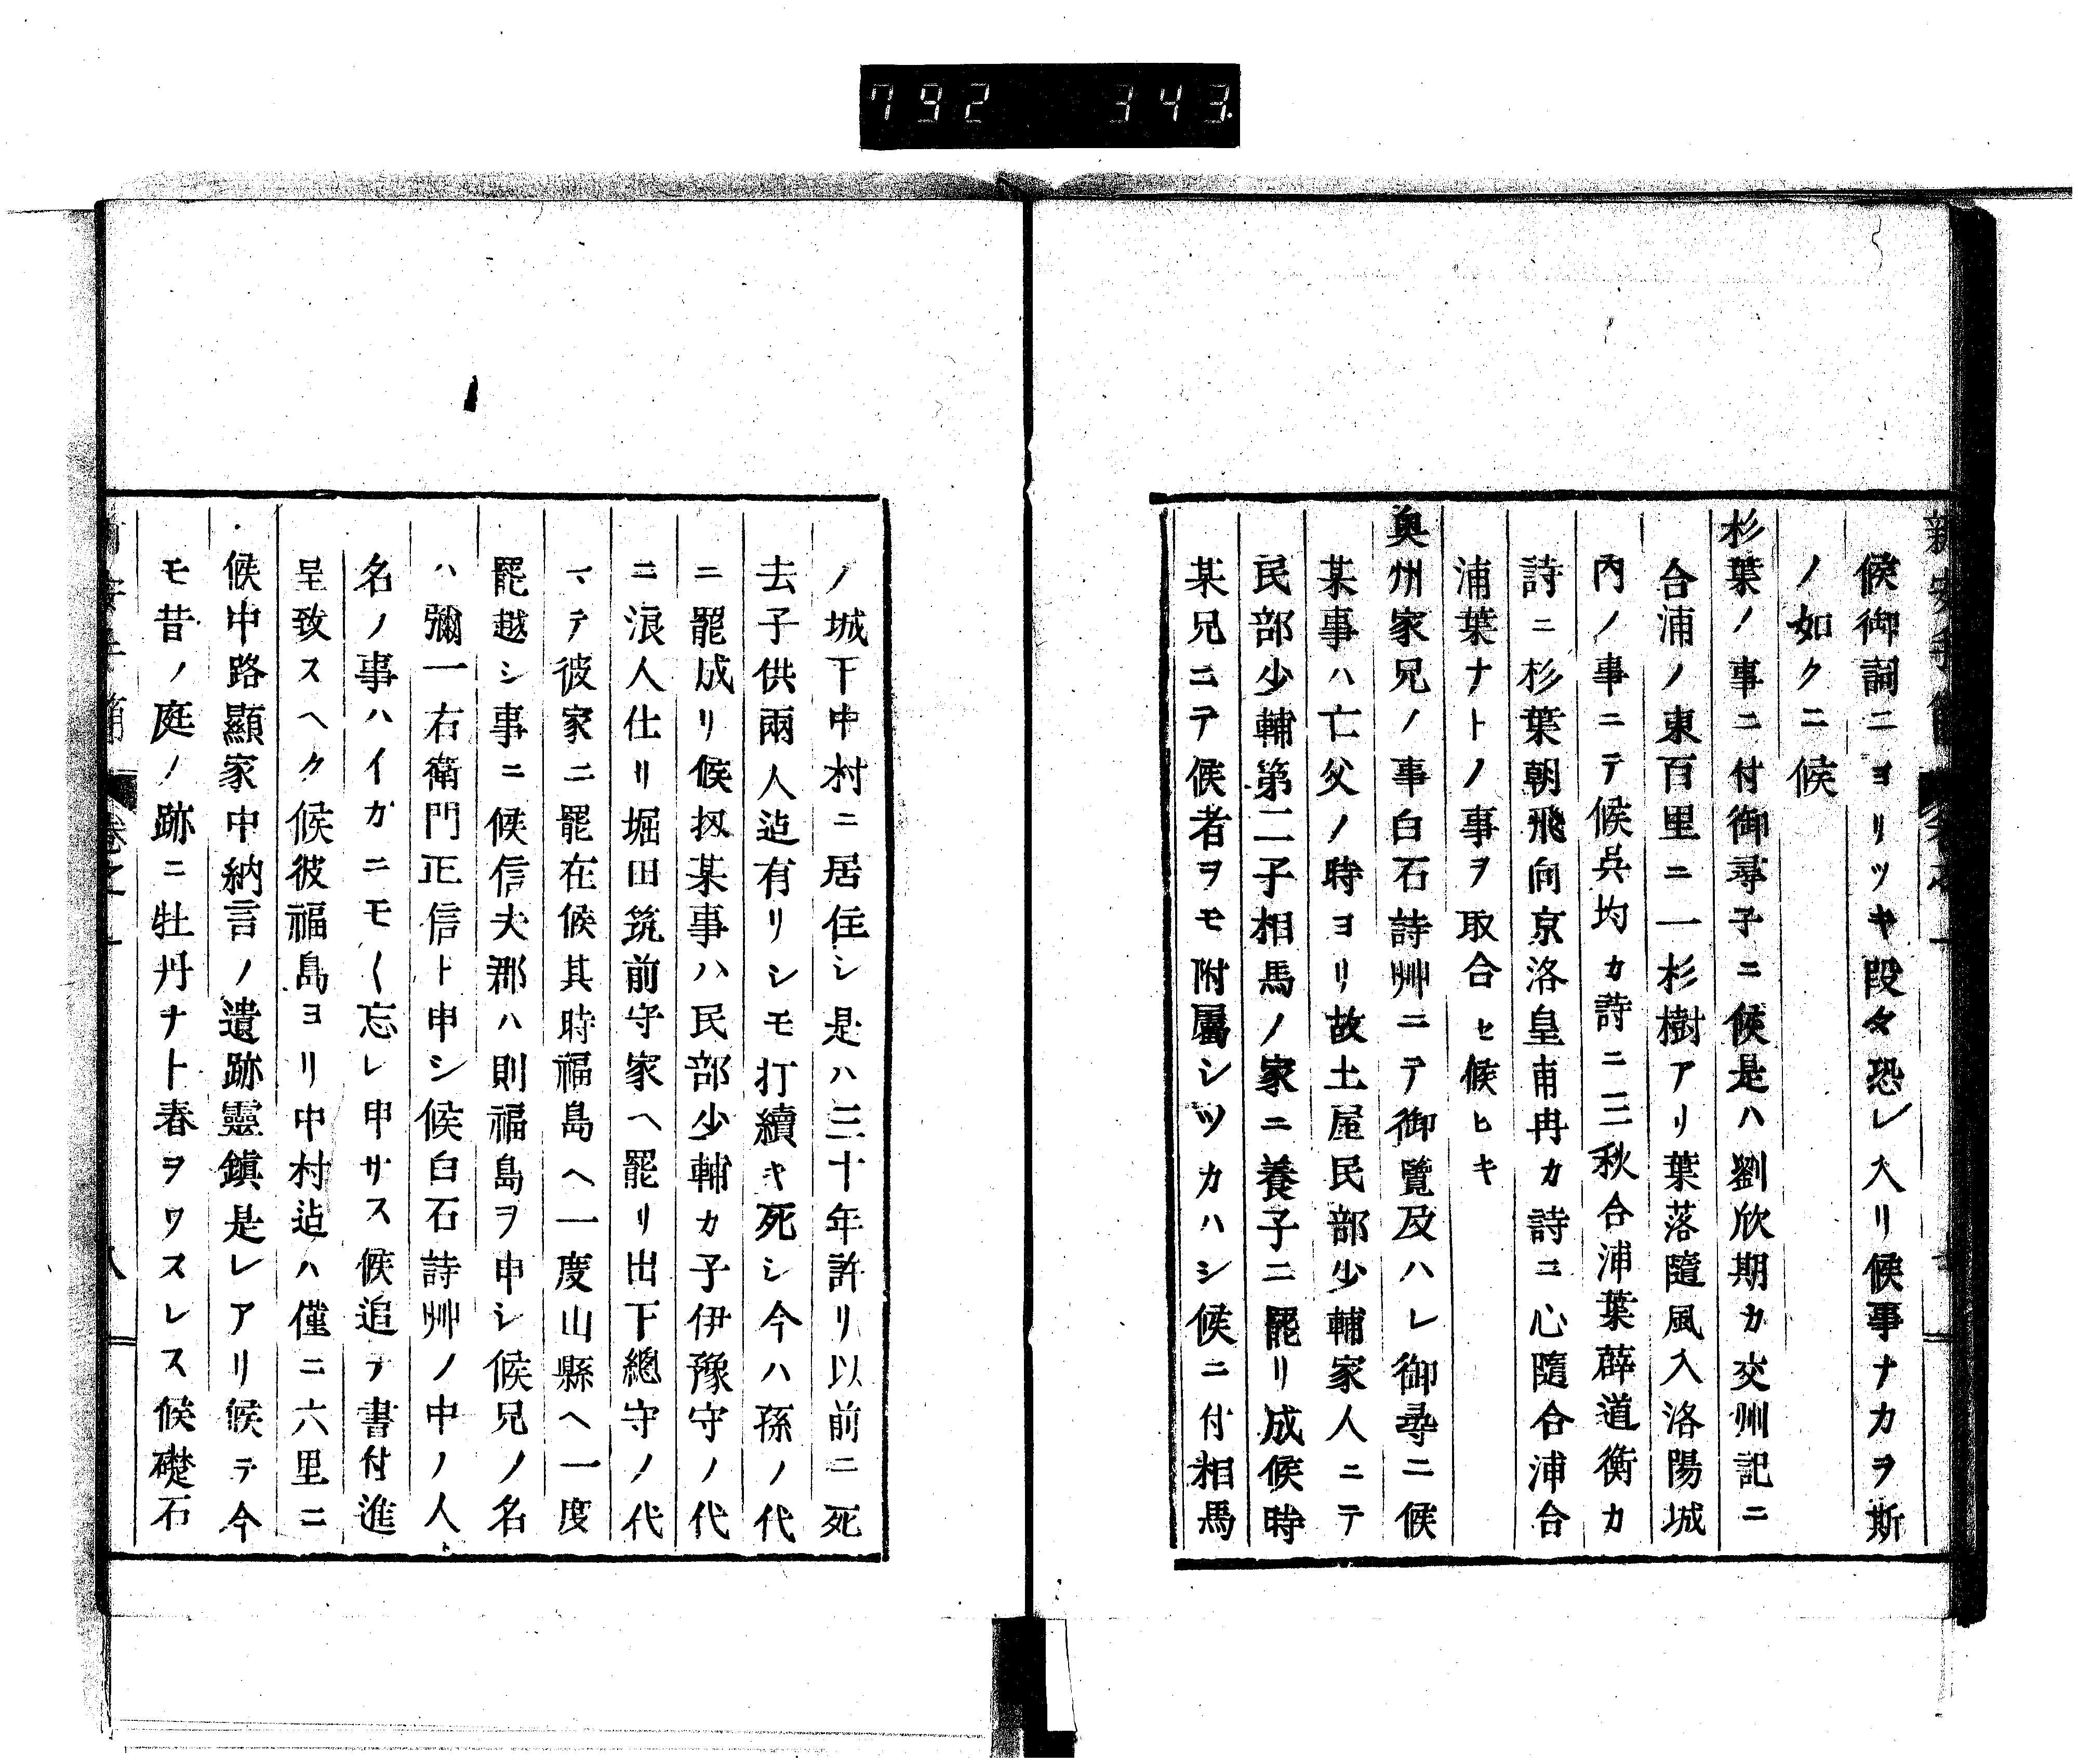 792 343
候御詞ニヨリツキ段々恐レ入リ候事ナカヲ斯
ノ如クニ候
杉葉ノ事ニ付御尋子ニ候是ハ劉欣期カ交州記ニ
合浦ノ東百里ニ一杉樹アリ葉落隨風入洛陽城
內ノ事ニテ候呉均カ詩ニ三秋合浦葉薜道衡カ
詩ニ杉葉朝飛向京洛皇甫冉カ詩ニ心隨合浦合
浦葉ナトノ事ヲ取合セ候ヒキ
奥州家兄ノ事白石詩艸ニテ御覽及ハレ御尋ニ候
某事ハ亡父ノ時ヨリ故土屋民部少輔家人ニテ
民部少輔第二子相馬ノ家ニ養子ニ罷リ成候時
某兄ニテ候者ヲモ附屬シツカハシ候ニ付相馬
ノ城下中村ニ居住シ是ハ三十年許リ以前ニ死
去子供兩人迠有リシモ打續キ死シ今ハ孫ノ代
ニ罷成リ候扨某事ハ民部少輔カ子伊豫守ノ代
ニ浪人仕リ堀田筑前守家ヘ罷リ出下總守ノ代
マテ彼家ニ罷在候其時福島ヘ一度山縣ヘ一度
罷越シ事ニ候信夫郡ハ則福島ヲ申シ候兄ノ名
ハ彌一右衛門正信ト申シ候白石詩艸ノ中ノ人
名ノ事ハイカニモ〱忘レ申サス候追テ書付進
呈致スヘク候彼福島ヨリ中村迠ハ僅ニ六里ニ
候中路顯家中納言ノ遺跡靈鎭是レアリ候テ今
モ昔ノ庭ノ跡ニ牡丹ナト春ヲワスレス候礎石